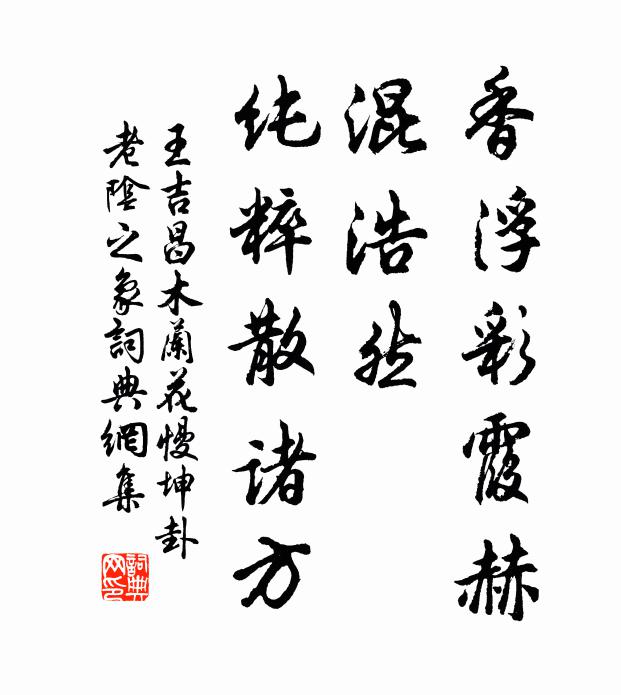 香浮彩霞赫
混浩然
纯粹散诸方
王吉昌木蘭花慢坤卦
老陰之象詞典網集
詞典
网印